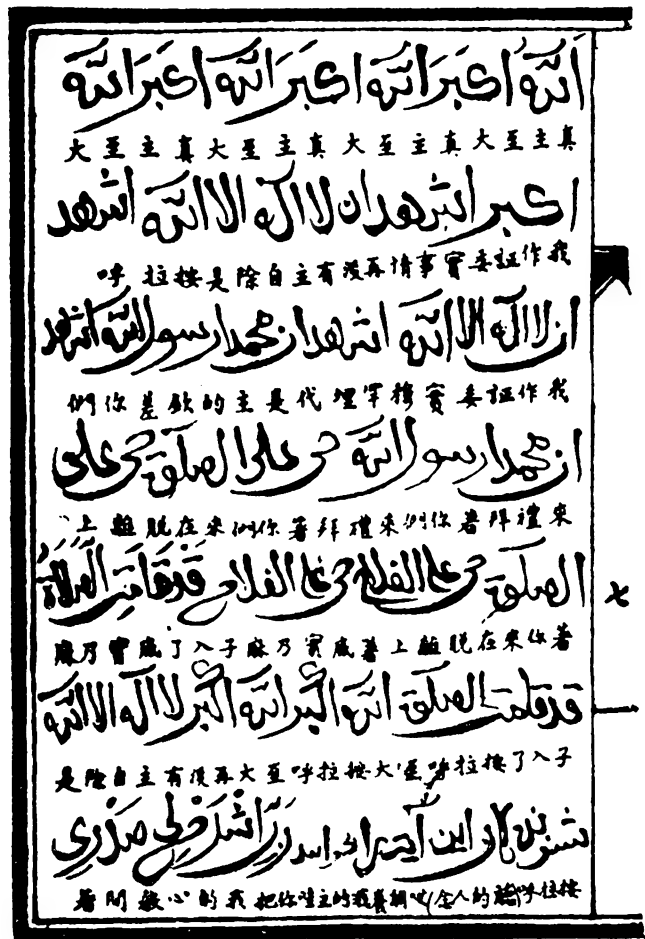 اَللهُ اكبَر الله اكبَر الله اكبَر الله
真主至大真主至大真主至大真主至大
اكبر اشهد ان لا اله الا الله اشهد
我作証委實事情再没有主自除是按拉呼
ان لا اله الا الله اشهد ان محمدا رسول الله اشهد
我作証委實穆罕埋代是主的欽差你們
ان محمدا رسول الله حى على الصلوة حى على
来禮拜着你們来禮拜着你們来在脱離上
الصلوة حى على الفلاح حى على الفلاح قَدْ قَامَتِ الصَّلَاةُ
着你来在脱離上着底實乃麻子入了底實乃麻
七
قد قامت الصلوة الله اكبر الله اكبر لا اله الا الله
子入了按拉呼至大按拉呼至大再没有主自除是
اين آية رَبِّ اشْرَحْ لِي صَدْرِي
按拉呼 人的 主你把我的心敞開着